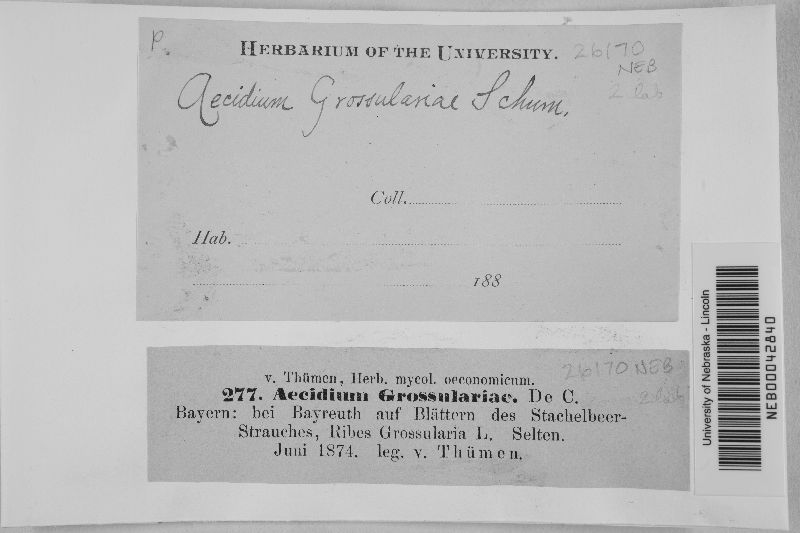 P.
HERBARIUM OF THE UNIVERSITY.
26170
NEB
2 lab
Aecidium Grossulariae Schum.
Coll.
Hab.
188
v. Thümen, Herb. mycol. oeconomicum.
26170 NEB
2 lab
277. Aecidium Grossulariae. De C.
Bayern: bei Bayreuth auf Blättern des Stachelbeer-
Strauches, Ribes Grossularia L. Selten.
Juni 1874. leg. v. Thümen.
University of Nebraska - Lincoln
NEB00042840